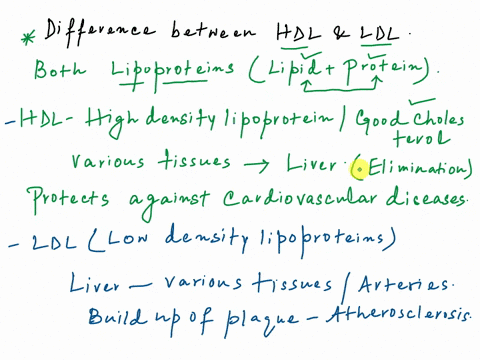 * Difference between HDL & LDL.
Both Lipoproteins (Lipid + Protein).
- HDL - High density lipoprotein / Good Choles
terol
various tissues → Liver. (Elimination)
Protects against cardiovascular diseases.
- LDL (Low density lipoproteins)
Liver - various tissues / Arteries.
Build up of plaque - Atherosclerosis.